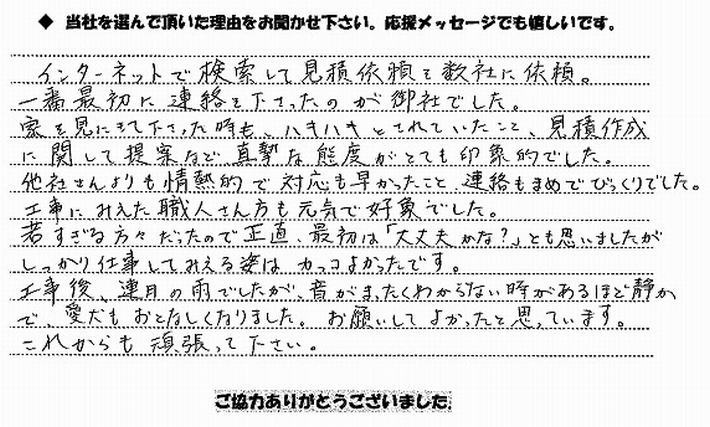 ◆ 当社を選んで頂いた理由をお聞かせ下さい。応援メッセージでも嬉しいです。
インターネットで検索して見積依頼を数社に依頼。
一番最初に連絡を下さったのが御社でした。
家を見にきて下さった時も、ハキハキとされていたこと、見積作成
に関して提案など真摯な態度がとても印象的でした。
他社さんよりも情熱的で対応も早かったこと、連絡もまめでびっくりでした。
工事にみえた職人さん方も元気で好象でした。
若すぎる方々だったので正直、最初は「大丈夫かな?」とも思いましたが
しっかり仕事してみえる姿はカッコよかったです。
工事後、連日の雨でしたが、音がまったくわからない時があるほど静か
で、愛犬もおとなしくなりました。お願いしてよかったと思っています。
これからも頑張って下さい。
ご協力ありがとうございました。